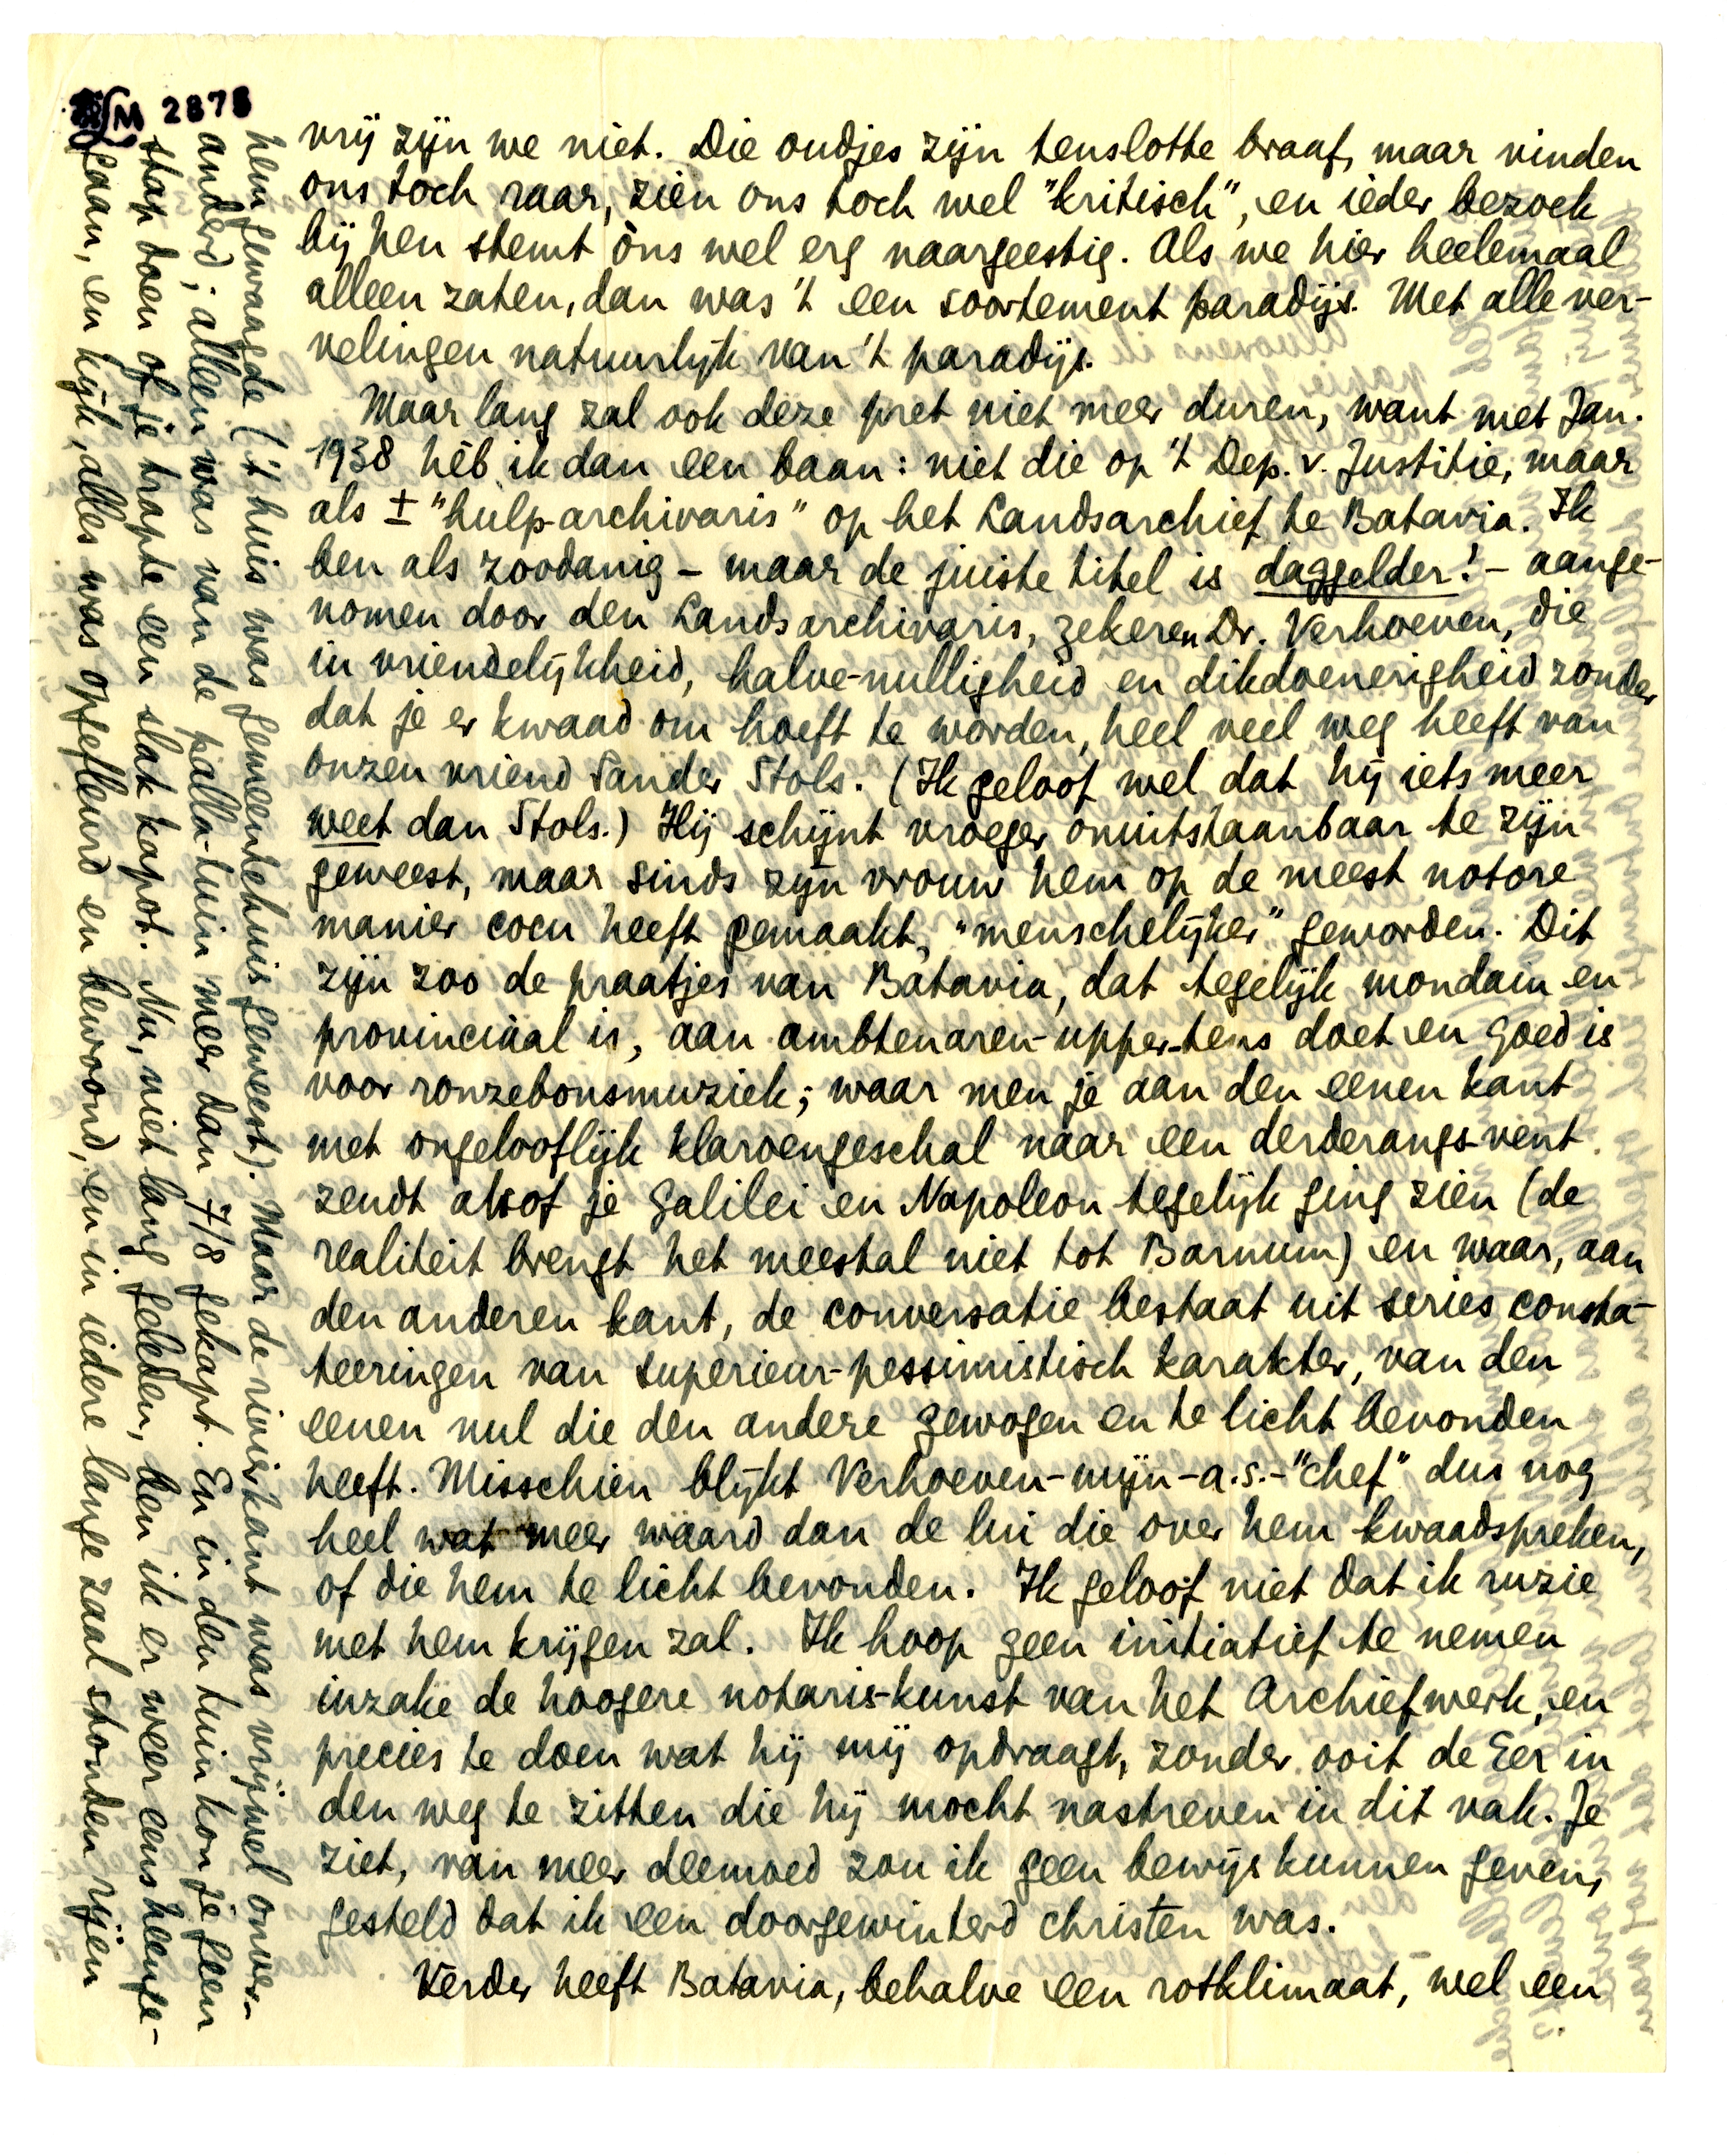 vrij zijn we niet. Die oudjes zijn tenslotte braaf, maar vinden
ons toch raar, zien ons toch wel "kritisch", en ieder bezoek
bij hen stemt òns wel erg naargeestig. Als we hier heelemaal
alleen zaten, dan was 't een soortement paradijs. Met alle ver-
velingen natuurlijk van 't paradijs.
Maar lang zal ook deze pret niet meer duren, want met Jan.
1938 hèb ik dan een baan: niet die op 't Dep. v. Justitie, maar
als ± "hulp-archivaris" op het Landsarchief te Batavia. Ik
ben als zoodanig – maar de juiste titel is daggelder! – aange-
nomen door den Landsarchivaris, zekeren Dr. Verhoeven, die
in vriendelijkheid, halve-nulligheid en dikdoenerigheid zonder
dat je er kwaad om hoeft te worden, heel veel weg heeft van
onzen vriend Sander Stols. (Ik geloof wel dat hij iets meer
weet dan Stols.) Hij schijnt vroeger onuitstaanbaar te zijn
geweest, maar sinds zijn vrouw hem op de meest notore
manier cocu heeft gemaakt, "menschelijker" geworden. Dit
zijn zoo de praatjes van Batavia, dat tegelijk mondain en
provinciaal is, aan ambtenaren-upper-tens doet en goed is
voor ronzebonsmuziek; waar men je aan den eenen kant
met ongelooflijk klaroengeschal naar een derderangs-vent
zendt alsof je Galilei en Napoleon tegelijk ging zien (de
realiteit brengt het meestal niet tot Barnum) en waar, aan
den anderen kant, de conversatie bestaat uit series consta-
teeringen van superieur-pessimistisch karakter, van den
eenen nul die den andere gewogen en te licht bevonden
heeft. Misschien blijkt Verhoeven-mijn-a.s.-"chef" dus nog
heel wat meer waard dan de lui die over hem kwaadspreken,
of die hem te licht bevonden. Ik geloof niet dat ik ruzie
met hem krijgen zal. Ik hoop geen initiatief te nemen
inzake de hoogere notaris-kunst van het Archiefwerk, en
precies te doen wat hij mij opdraagt, zonder ooit de Eer in
den weg te zitten die hij mocht nastreven in dit vak. Je
ziet, van meer deemoed zou ik geen bewijs kunnen geven,
gesteld dat ik een doorgewinterd christen was.
Verder heeft Batavia, behalve een rotklimaat, wel een
hem gewaagde ('t huis was gemeentehuis geweest). Maar de rivierkant was vrijwel onver-
anderd; alleen was van de palla-tuin meer dan 7/8 gekapt. En in den tuin kon je geen
stap doen of je trapte een slak kapot. Nu, niet lang geleden, ben ik er weer eens heenge-
gaan, en kijk, alles was opgefleurd en bewoond, en in iedere lange zaal stonden rijen
LM 2878